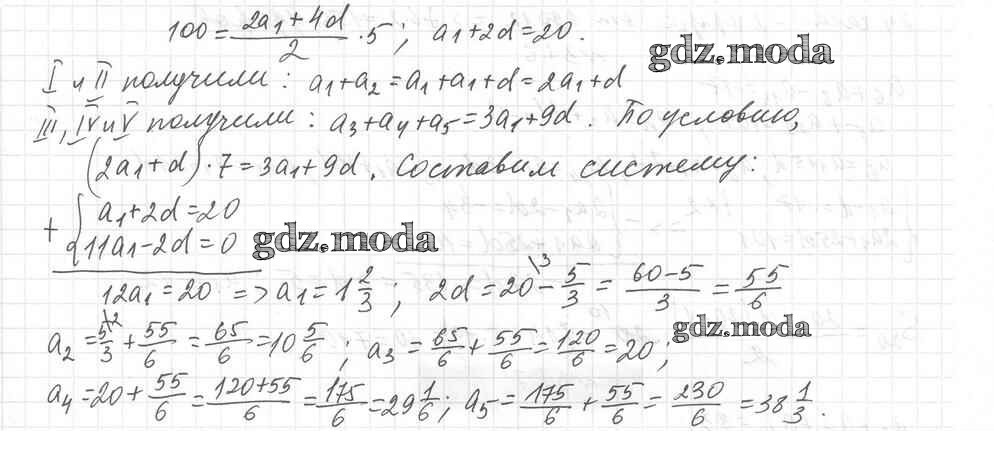 100 = (2a₁ + 4d)/2 · 5; a₁ + 2d = 20.
gdz.moda
I и II получили: a₁ + a₂ = a₁ + a₁ + d = 2a₁ + d
III, IV и V получили: a₃ + a₄ + a₅ = 3a₁ + 9d. По условию,
(2a₁ + d) · 7 = 3a₁ + 9d. Составим систему:
+ { a₁ + 2d = 20
11a₁ − 2d = 0
gdz.moda
12a₁ = 20 => a₁ = 1 2/3; 2d = 20\3 − 5/3 = (60 − 5)/3 = 55/6
gdz.moda
a₂ = 5\2/3 + 55/6 = 65/6 = 10 5/6; a₃ = 65/6 + 55/6 = 120/6 = 20;
a₄ = 20 + 55/6 = (120 + 55)/6 = 175/6 = 29 1/6; a₅ = 175/6 + 55/6 = 230/6 = 38 1/3.